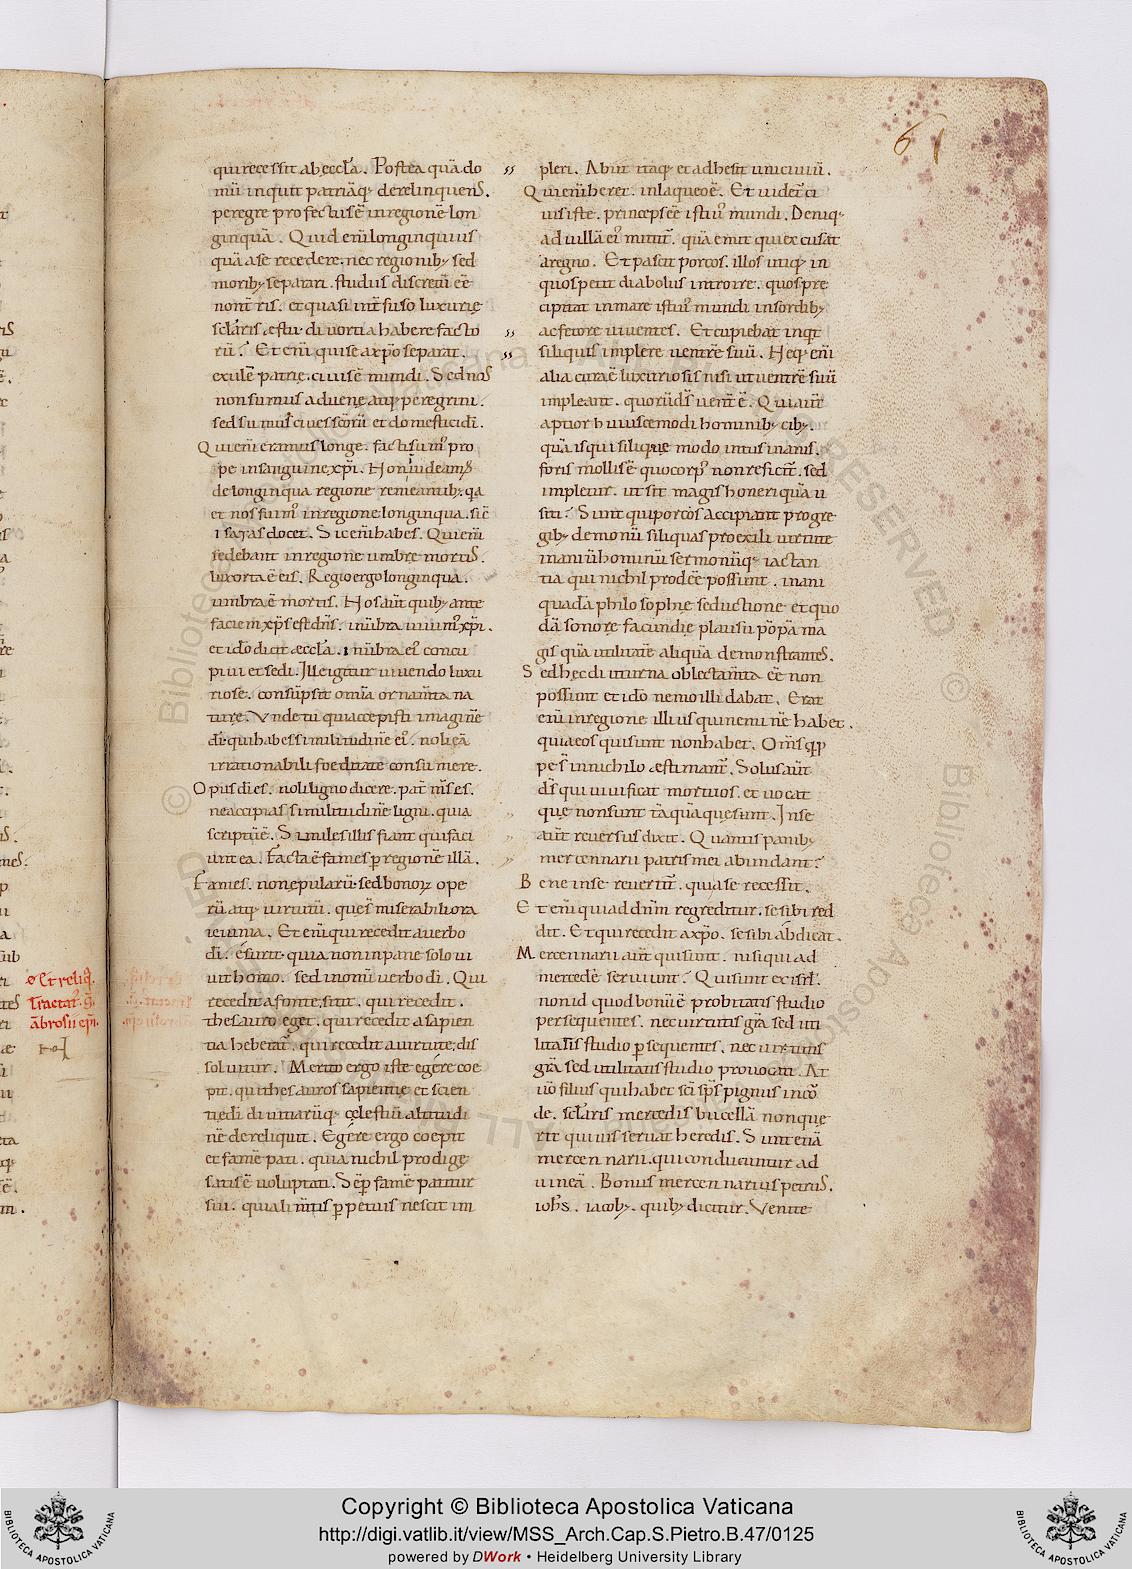 61
qui recessit ab eccl̄a. Postea quā do
mū inquit patriāq; derelinquenS.
peregre profectus ē in regionē lon
ginquā. Quid enī longinquius
quā a se recedere. nec regionib; sed
morib; separari. studiis discretū eē
et quasi int̄fuso luxurię
sclāris ęstu. di uortia habere facto
rū? Et enī qui se a xp̄o separat.
exulē patrię. ciuis ē mundi. Sed nos
non sumus aduenę atq; peregrini.
sed sumus ciues scōrū et domestici dī.
Qui enī eramus longe. facti sumꝰ pro
pe in sanguine xp̄i. Non iudeamꝰ
de longinqua regione remeantib;. qa
et nos fuimꝰ in regione longinqua. sic̄
isaias docet. Sic enī habes. Qui enī
sedebant in regione umbre mortiS.
lux orta ē eis. Regio ergo longinqua.
umbra ē mortis. Nos aūt quib; ante
faciem xp̄s est dn̄s. in ūbra uiuimꝰ xp̄i.
et idō dicit ęccl̄a. in ūbra eiꝰ concu
piui et sedi. Ille igitur uiuendo luxu
riose. consūpsit omīa ornam̄ta na
turę. Vnde tu qui accepisti imaginē
dī. qui habes similitudinē eiꝰ. noli eā
irrationabili foeditate consumere.
Opus dī es. noli ligno dicere. pat̄ ms̄ es.
ne accipias similitudinē ligni. quia
scriptū ē. Similes illis fiant qui faci
unt ea. Facta ē fames p̄ regionē illā.
Fames. non epularū sed bonoꝝ ope
rū atq; uirtutū. que s̄ miserabiliora
ieiunia. Et enī qui recedit a uerbo
dī. esurit. quia non in pane solo ui
uit homo. sed in omī uerbo dī. Qui
recedit a fonte. sitit. qui recedit.
thesauro. eget. qui recedit a sapien
tia. hebetat̄. qui recedit a uirtute. dis
soluitur. Merito ergo iste egere coe
pit. qui thesauros sapientię et scien
tię dī diuitiarūq; cęlestiū altitudi
nē dereliquit. Egere ergo coepit
et famē pati. quia nichil prodigę
satis ē uoluptati. Sēp famē patitur
sui. qui alim̄tis p̄petuis nescit im
pleri. Abiit itaq; et adhesit uni ciuiū.
Qui enī heret. in laqueo ē. Et uidet̄ ci
uis iste. princeps eē istiuꝰ mundi. Deniq;
ad uillā eiꝰ mittit̄. quā emit qui excusat
a regno. Et pascit porcos. illos utiq; in
quos petit diabolus introire. quos pre
cipitat in mare istiuꝰ mundi in sordib;
ac fetore uiuentes. Et cupiebat inqt
siliquis implere uentrē suū. Neq; enī
alia cura ē luxuriosis nisi ut uentrē suū
impleant. quorū ds̄ uent̄ ē. Qui aut̄
aptior huiuscemodi hominib; cib;.
quā is qui silique modo intus inanis.
foris mollis ē quo corpꝰ non reficit̄. sed
impletur. ut sit magis honeri quā u
sui? Sunt qui porcos accipiant p̄ gre
gib; demonū siliquas pro exili uirtute
inaniū hominū sermonūq; iactan
tia qui nichil prodeē possunt. inani
quadā philosophie seductione et quo
dā sonore facundie plausu pōpā ma
gis quā utilitatē aliquā demonstranteS.
Sed hęc diuturna oblectam̄ta eē non
possunt et idō nemo illi dabat. Erat
enī in regione illius qui neminē habet.
quia eos qui sunt non habet. Om̄s
s̄ in nichilo ęstimant̄. Solus aūt
ds̄ qui uiuificat mortuos. et uocat
quę non sunt tāquā quę sunt. In se
aūt reuersus dixit. Quantis panib;
mercennarii patris mei abundant?
Bene in se reuertit̄. quia se recessit.
Et enī qui ad dn̄m regreditur. se sibi red
dit. Et qui recedit a xp̄o. se sibi abdicat.
Mercennarii aūt qui sunt. nisi qui ad
mercedē seruiunt? Qui sunt ex isrl̄.
non id quod bonū ē probitatis studio
persequentes. nec uirtutis gr̄a sed uti
litatis studio p̄sequentes. nec uirtutis
gr̄a sed utilitatis studio prouocati. At
uō filius qui habet scī sp̄s pignus in cor
de. sclāris mercedis bucellā non quę
rit qui ius seruat heredis. Sunt etiā
mercennarii. qui conducuntur ad
uineā. Bonus mercennarius petruS.
iohs̄. iacob;. quib; dicitur. Venite
Et reliq̄.
Tractaꝰ.
ābrosii ep̄i.
Copyright © Biblioteca Apostolica Vaticana
http://digi.vatlib.it/view/MSS_Arch.Cap.S.Pietro.B.47/0125
powered by DWork • Heidelberg University Library
BIBLIOTECA APOSTOLICA VATICANA
BIBLIOTECA APOSTOLICA VATICANA
© Biblioteca Apostolica Vaticana ALL RIGHTS RESERVED